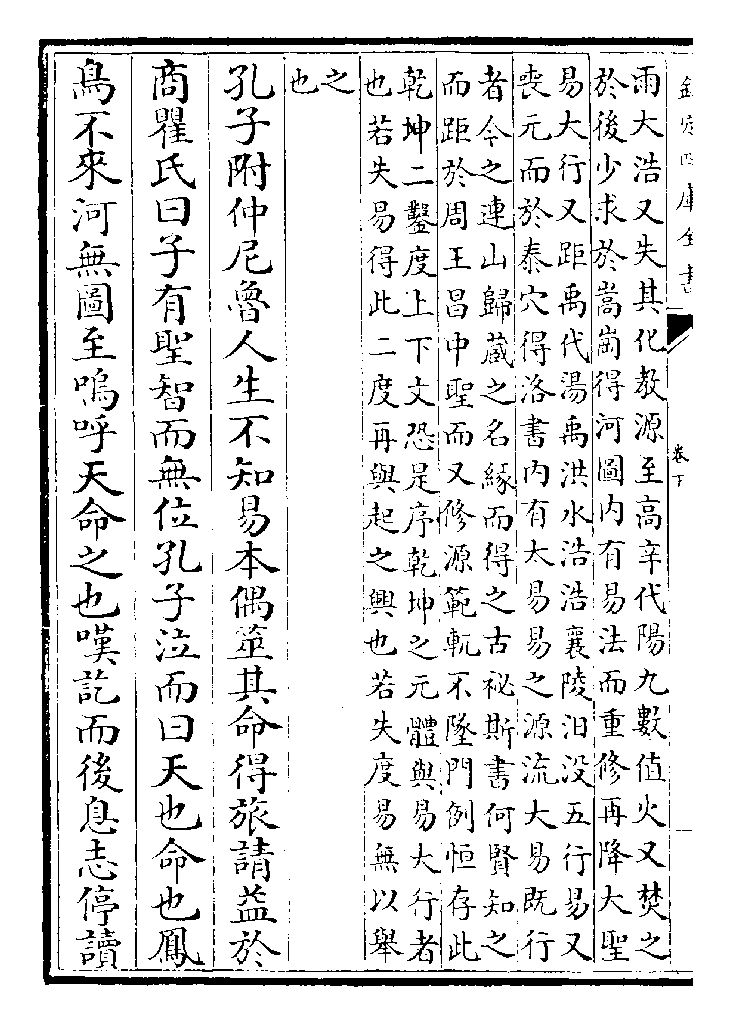 欽定四庫全書
卷下
雨大浩又失其化教源至高辛代陽九數值火又焚之
於後少求於嵩崗得河圖内有易法而重修再降大聖
易大行又距禹代湯禹洪水浩浩襄陵汨没五行易又
喪元而於泰穴得洛書内有太易易之源流大易既行
者今之連山歸藏之名緣而得之古祕斯書何賢知之
而距於周王昌中聖而又修源範軏不墜門例恒存此
乾坤二鑿度上下文恐是序乾坤之元體與易大行者
也若失易得此二度再與起之興也若失度易無以舉
之
也
孔子附仲尼魯人生不知易本偶筮其命得旅請益於
商瞿氏曰子有聖智而無位孔子泣而曰天也命也鳳
鳥不來河無圖至嗚呼天命之也嘆訖而後息志停讀